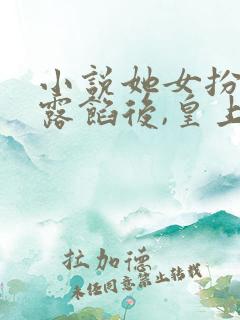 小說她女扮
露餡後,皇上
拉加德
未经同意禁止转载